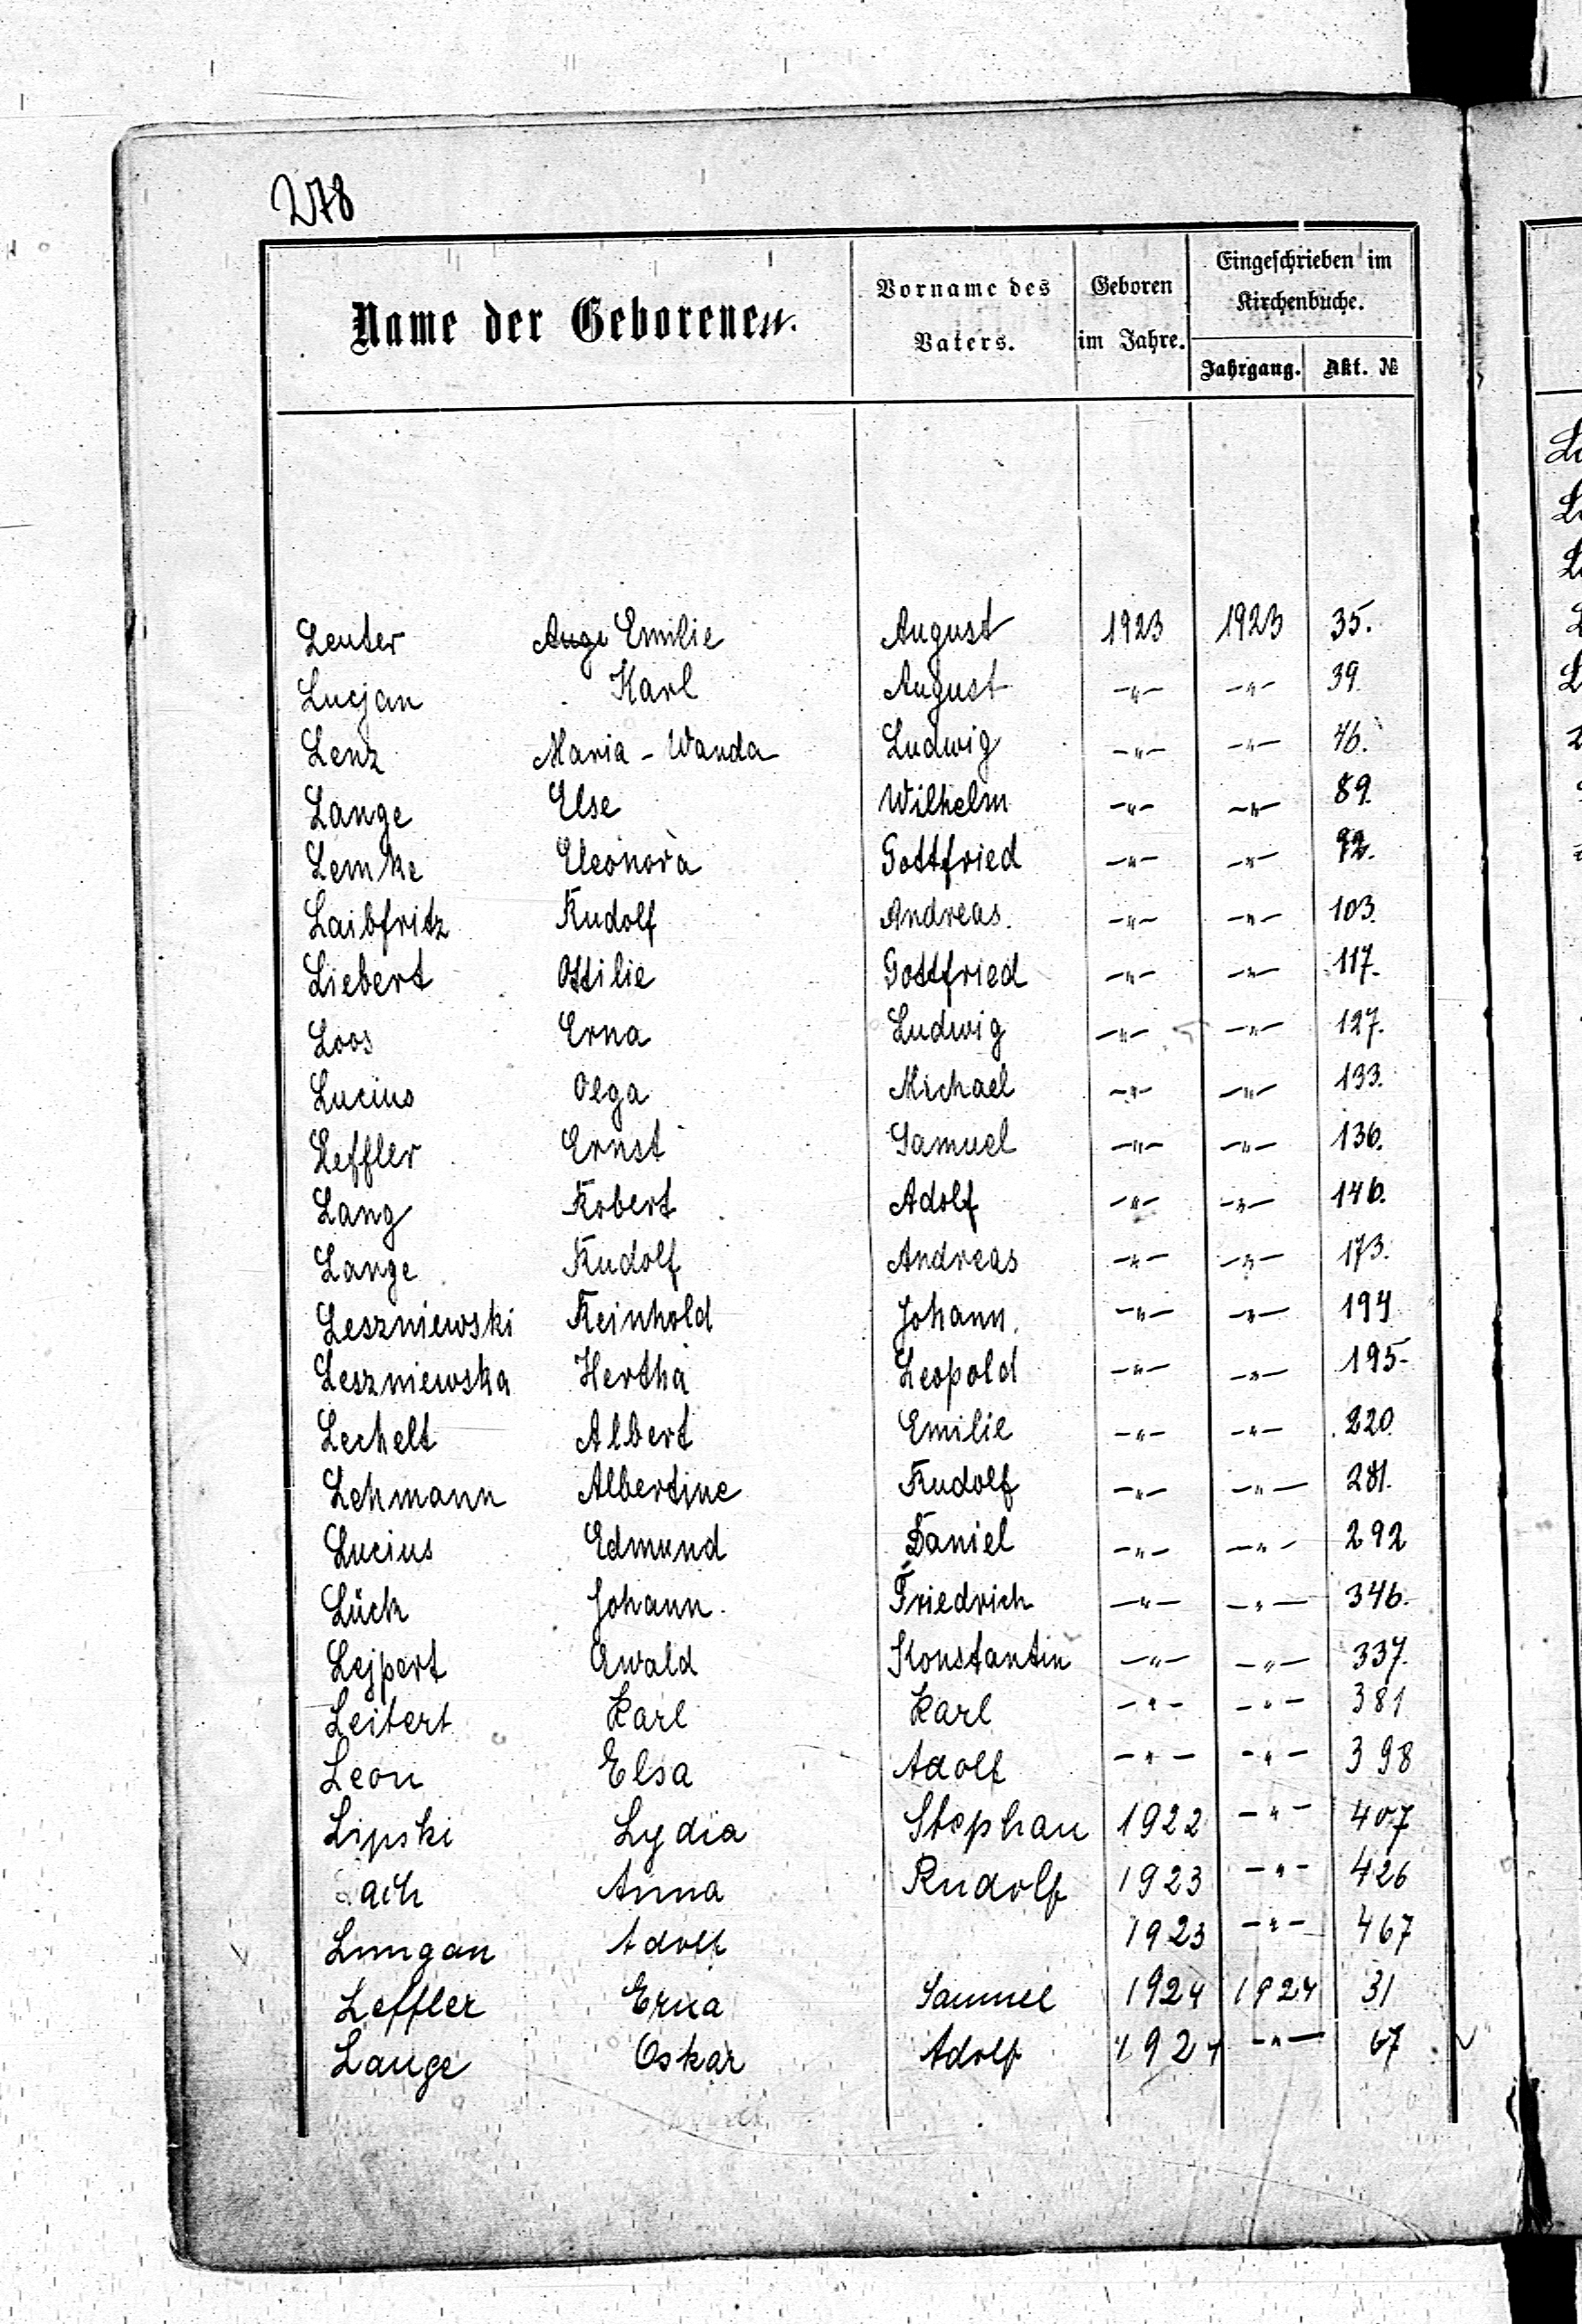 278
Name der Geborenen. Vorname des Vaters. Geboren im Jahre. Eingeschrieben im Kirchenbuche.
Jahrgang. Akt. №
Leuter Auge Emilie August 1923 1923 35.
Lucjan Karl August -"- -"- 39.
Lenz Maria - Wanda Ludwig -"- -"- 46.
Lange Else Wilhelm -"- -"- 89.
Lemke Eleonora Gottfried -"- -"- 92.
Laibfritz Rudolf Andreas. -"- -"- 103.
Liebert Ottilie Gottfried -"- -"- 117.
Loos Erna Ludwig -"- -"- 127.
Lucius Olga Michael -"- -"- 133.
Leffler Ernst Samuel -"- -"- 136.
Lang Robert Adolf -"- -"- 146.
Lange Rudolf Andreas -"- -"- 173.
Leszniewski Reinhold Johann. -"- -"- 194
Leszniewska Hertha Leopold -"- -"- 195-
Lechelt Albert Emilie -"- -"- 220.
Lehmann Albertine Rudolf -"- -"- 281.
Lucius Edmund Daniel -"- -"- 292
Lück Johann. Friedrich -"- -"- 346.
Lejpert Awald Konstantin -"- -"- 337.
Leitert Karl Karl -"- -"- 381
Leon Elsa Adolf -"- -"- 398
Lipski Lydia Stephan 1922 -"- 407
Lach Anna Rudolf 1923 -"- 426
Adolf 1923 -"- 467
Leffler Erna Samuel 1924 1924 31
Lange Oskar Adolf 1924 -"- 67